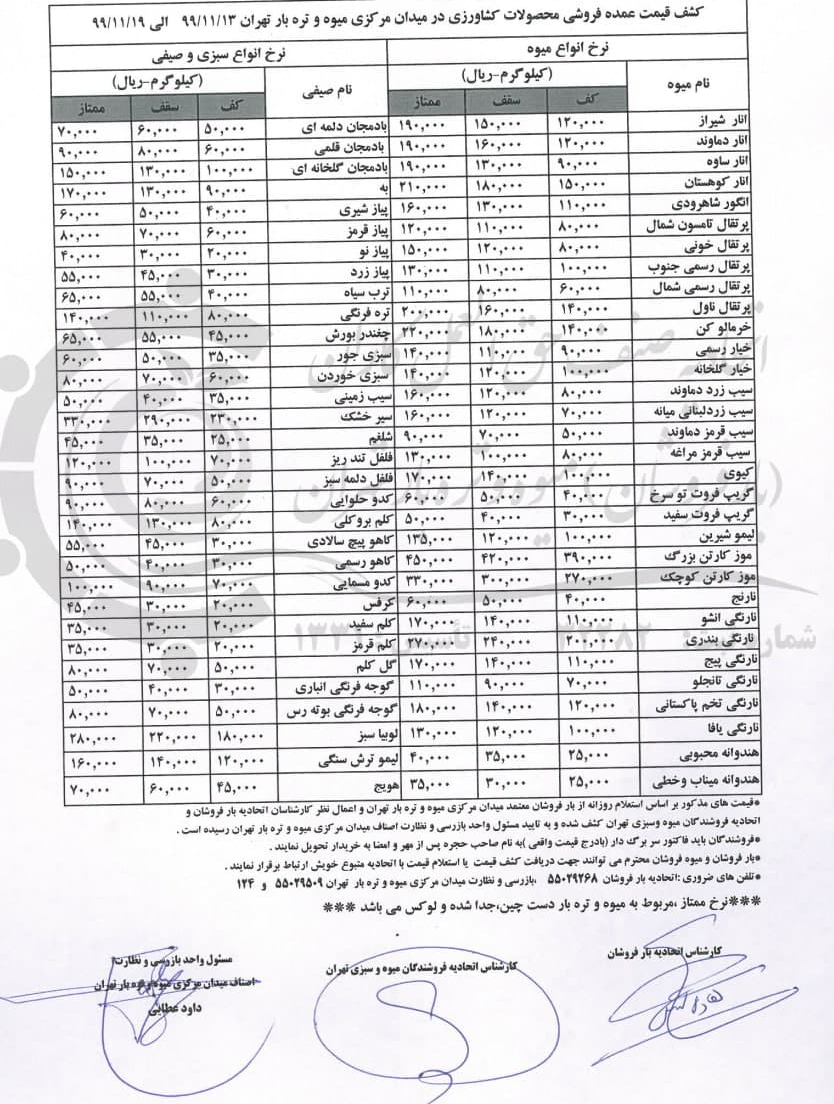 کشف قیمت عمده فروشی محصولات کشاورزی در میدان مرکزی میوه و تره بار تهران ۹۹/۱۱/۱۳ الی ۹۹/۱۱/۱۹
نرخ انواع میوه نرخ انواع سبزی و صیفی
نام میوه (کیلوگرم-ریال) نام صیفی (کیلوگرم-ریال)
کف سقف ممتاز کف سقف ممتاز
انار شیراز ۱۲۰,۰۰۰ ۱۵۰,۰۰۰ ۱۹۰,۰۰۰ بادمجان دلمه ای ۵۰,۰۰۰ ۶۰,۰۰۰ ۷۰,۰۰۰
انار دماوند ۱۲۰,۰۰۰ ۱۶۰,۰۰۰ ۱۹۰,۰۰۰ بادمجان قلمی ۶۰,۰۰۰ ۸۰,۰۰۰ ۹۰,۰۰۰
انار ساوه ۹۰,۰۰۰ ۱۳۰,۰۰۰ ۱۹۰,۰۰۰ بادمجان گلخانه ای ۱۰۰,۰۰۰ ۱۳۰,۰۰۰ ۱۵۰,۰۰۰
انار کوهستان ۱۵۰,۰۰۰ ۱۸۰,۰۰۰ ۲۱۰,۰۰۰ به ۹۰,۰۰۰ ۱۳۰,۰۰۰ ۱۷۰,۰۰۰
انگور شاهرودی ۱۱۰,۰۰۰ ۱۳۰,۰۰۰ ۱۶۰,۰۰۰ پیاز شیری ۴۰,۰۰۰ ۵۰,۰۰۰ ۶۰,۰۰۰
پرتقال تامسون شمال ۸۰,۰۰۰ ۱۱۰,۰۰۰ ۱۲۰,۰۰۰ پیاز قرمز ۶۰,۰۰۰ ۷۰,۰۰۰ ۸۰,۰۰۰
پرتقال خونی ۸۰,۰۰۰ ۱۲۰,۰۰۰ ۱۵۰,۰۰۰ پیاز نو ۲۰,۰۰۰ ۳۰,۰۰۰ ۴۰,۰۰۰
پرتقال رسمی جنوب ۱۰۰,۰۰۰ ۱۱۰,۰۰۰ ۱۳۰,۰۰۰ پیاز زرد ۳۰,۰۰۰ ۴۵,۰۰۰ ۵۵,۰۰۰
پرتقال رسمی شمال ۶۰,۰۰۰ ۸۰,۰۰۰ ۱۱۰,۰۰۰ ترب سیاه ۴۰,۰۰۰ ۵۵,۰۰۰ ۶۵,۰۰۰
پرتقال ناول ۱۴۰,۰۰۰ ۱۶۰,۰۰۰ ۲۰۰,۰۰۰ تره فرنگی ۸۰,۰۰۰ ۱۱۰,۰۰۰ ۱۴۰,۰۰۰
خرمالو کن ۱۴۰,۰۰۰ ۱۸۰,۰۰۰ ۲۲۰,۰۰۰ چغندر بورش ۴۵,۰۰۰ ۵۵,۰۰۰ ۶۵,۰۰۰
خیار رسمی ۹۰,۰۰۰ ۱۱۰,۰۰۰ ۱۴۰,۰۰۰ سبزی جور ۳۵,۰۰۰ ۵۰,۰۰۰ ۶۰,۰۰۰
خیار گلخانه ۱۰۰,۰۰۰ ۱۲۰,۰۰۰ ۱۴۰,۰۰۰ سبزی خوردن ۶۰,۰۰۰ ۷۰,۰۰۰ ۸۰,۰۰۰
سیب زرد دماوند ۸۰,۰۰۰ ۱۲۰,۰۰۰ ۱۶۰,۰۰۰ سیب زمینی ۳۵,۰۰۰ ۴۰,۰۰۰ ۵۰,۰۰۰
سیب زردلبنانی میانه ۷۰,۰۰۰ ۱۲۰,۰۰۰ ۱۶۰,۰۰۰ سیر خشک ۲۳۰,۰۰۰ ۲۹۰,۰۰۰ ۳۳۰,۰۰۰
سیب قرمز دماوند ۵۰,۰۰۰ ۷۰,۰۰۰ ۹۰,۰۰۰ شلغم ۲۵,۰۰۰ ۳۵,۰۰۰ ۴۵,۰۰۰
سیب قرمز مراغه ۸۰,۰۰۰ ۱۰۰,۰۰۰ ۱۳۰,۰۰۰ فلفل تند ریز ۷۰,۰۰۰ ۱۰۰,۰۰۰ ۱۲۰,۰۰۰
کیوی ۱۰۰,۰۰۰ ۱۴۰,۰۰۰ ۱۷۰,۰۰۰ فلفل دلمه سبز ۵۰,۰۰۰ ۷۰,۰۰۰ ۹۰,۰۰۰
گریپ فروت تو سرخ ۴۰,۰۰۰ ۵۰,۰۰۰ ۶۰,۰۰۰ کدو حلوایی ۶۰,۰۰۰ ۸۰,۰۰۰ ۹۰,۰۰۰
گریپ فروت سفید ۳۰,۰۰۰ ۴۰,۰۰۰ ۵۰,۰۰۰ کلم بروکلی ۸۰,۰۰۰ ۱۳۰,۰۰۰ ۱۴۰,۰۰۰
لیمو شیرین ۱۰۰,۰۰۰ ۱۲۰,۰۰۰ ۱۳۵,۰۰۰ کاهو پیچ سالادی ۳۰,۰۰۰ ۴۵,۰۰۰ ۵۵,۰۰۰
موز کارتن بزرگ ۳۹۰,۰۰۰ ۴۲۰,۰۰۰ ۴۵۰,۰۰۰ کاهو رسمی ۳۰,۰۰۰ ۴۰,۰۰۰ ۵۰,۰۰۰
موز کارتن کوچک ۲۷۰,۰۰۰ ۳۰۰,۰۰۰ ۳۳۰,۰۰۰ کدو مسمایی ۷۰,۰۰۰ ۹۰,۰۰۰ ۱۰۰,۰۰۰
نارنج ۴۰,۰۰۰ ۵۰,۰۰۰ ۶۰,۰۰۰ کرفس ۲۰,۰۰۰ ۳۰,۰۰۰ ۴۵,۰۰۰
نارنگی انشو ۱۱۰,۰۰۰ ۱۴۰,۰۰۰ ۱۷۰,۰۰۰ کلم سفید ۲۰,۰۰۰ ۳۰,۰۰۰ ۳۵,۰۰۰
نارنگی بندری ۲۰۰,۰۰۰ ۲۴۰,۰۰۰ ۲۷۰,۰۰۰ کلم قرمز ۲۰,۰۰۰ ۳۰,۰۰۰ ۳۵,۰۰۰
نارنگی پیج ۱۱۰,۰۰۰ ۱۴۰,۰۰۰ ۱۷۰,۰۰۰ گل کلم ۵۰,۰۰۰ ۷۰,۰۰۰ ۸۰,۰۰۰
نارنگی تانجلو ۷۰,۰۰۰ ۹۰,۰۰۰ ۱۱۰,۰۰۰ گوجه فرنگی انباری ۳۰,۰۰۰ ۴۰,۰۰۰ ۵۰,۰۰۰
نارنگی تخم پاکستانی ۱۲۰,۰۰۰ ۱۴۰,۰۰۰ ۱۸۰,۰۰۰ گوجه فرنگی بوته رس ۵۰,۰۰۰ ۷۰,۰۰۰ ۸۰,۰۰۰
نارنگی یافا ۱۰۰,۰۰۰ ۱۲۰,۰۰۰ ۱۳۰,۰۰۰ لوبیا سبز ۱۸۰,۰۰۰ ۲۲۰,۰۰۰ ۲۸۰,۰۰۰
هندوانه محبوبی ۲۵,۰۰۰ ۳۵,۰۰۰ ۴۰,۰۰۰ لیمو ترش سنگی ۱۲۰,۰۰۰ ۱۴۰,۰۰۰ ۱۶۰,۰۰۰
هندوانه میناب وخطی ۲۵,۰۰۰ ۳۰,۰۰۰ ۳۵,۰۰۰ هویج ۴۵,۰۰۰ ۶۰,۰۰۰ ۷۰,۰۰۰
*قیمت های مذکور بر اساس استعلام روزانه از بار فروشان معتمد میدان مرکزی میوه و تره بار تهران و اعمال نظر کارشناسان اتحادیه بار فروشان و
اتحادیه فروشندگان میوه وسبزی تهران کشف شده و به تایید مسئول واحد بازرسی و نظارت اصناف میدان مرکزی میوه و تره بار تهران رسیده است .
*فروشندگان باید فاکتور سر برگ دار (بادرج قیمت واقعی )به نام صاحب حجره پس از مهر و امضا به خریدار تحویل نمایند .
*بار فروشان و میوه فروشان محترم می توانند جهت دریافت کشف قیمت یا استعلام قیمت با اتحادیه متبوع خویش ارتباط برقرار نمایند .
*تلفن های ضروری :اتحادیه بار فروشان ۵۵۰۲۹۲۶۸ ،بازرسی و نظارت میدان مرکزی میوه و تره بار تهران ۵۵۰۲۹۵۰۹ و ۱۲۴
***نرخ ممتاز ،مربوط به میوه و تره بار دست چین،جدا شده و لوکس می باشد ***
کارشناس اتحادیه بار فروشان
کارشناس اتحادیه فروشندگان میوه و سبزی تهران
مسئول واحد بازرسی و نظارت
اصناف میدان مرکزی میوه و تره بار تهران
داود عطایی